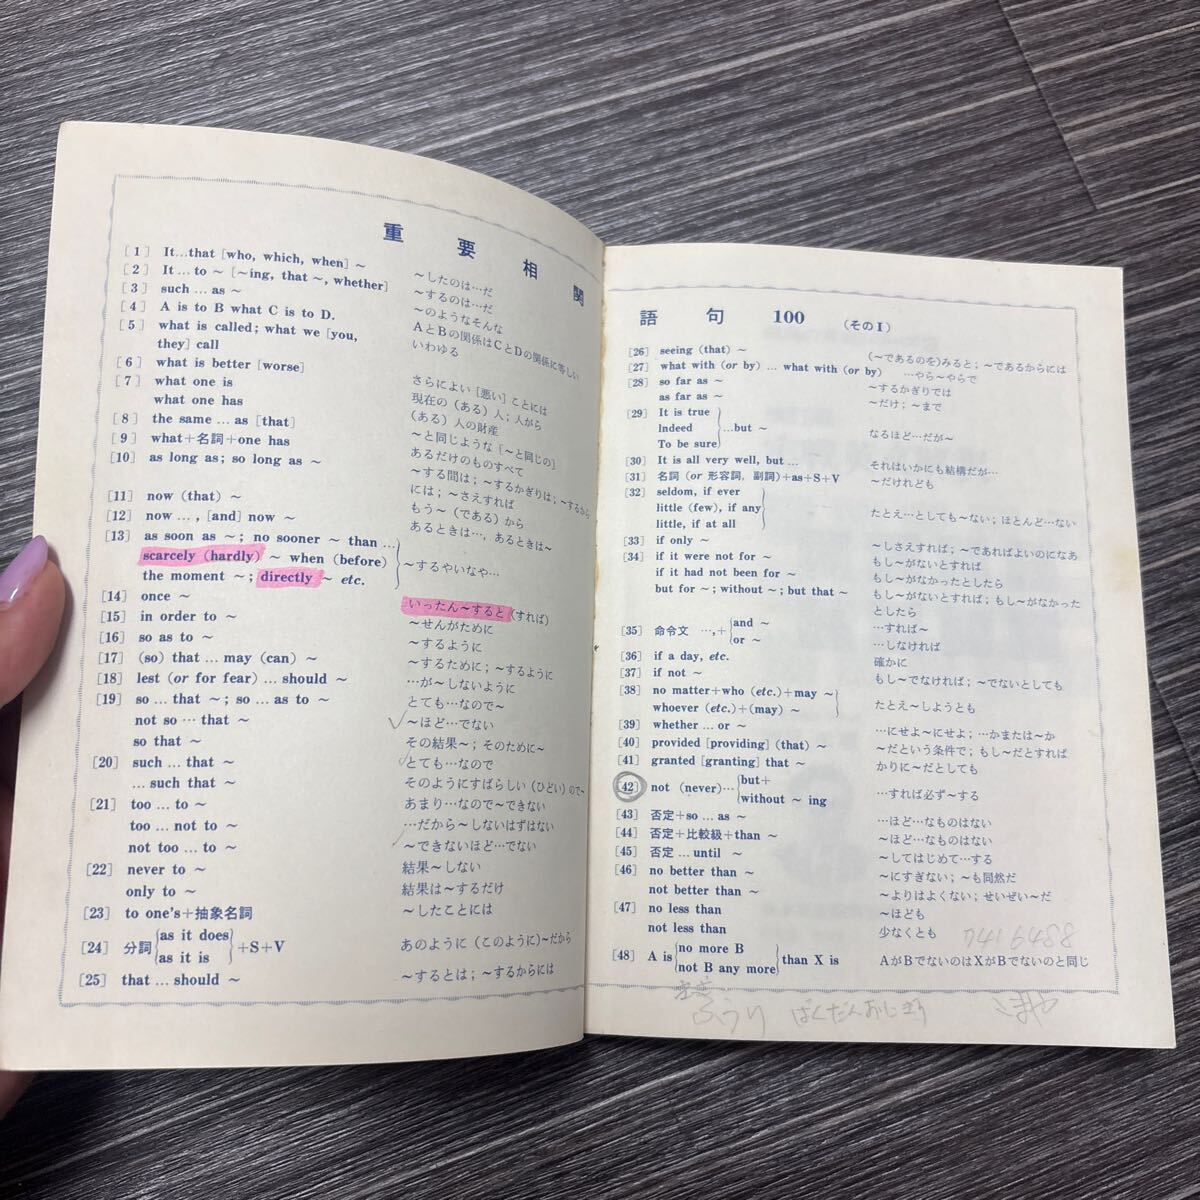 重要相関
[1] It…that [who, which, when] ～ ～したのは…だ
[2] It … to ～ [～ing, that ～, whether] ～するのは…だ
[3] such … as ～ ～のようなそんな
[4] A is to B what C is to D. AとBの関係はCとDの関係に等しい
[5] what is called; what we [you, いわゆる
they] call
[6] what is better [worse] さらによい [悪い] ことには
[7] what one is 現在の (ある) 人; 人がら
what one has (ある) 人の財産
[8] the same … as [that] ～と同じような [～と同じの]
[9] what+名詞+one has あるだけのものすべて
[10] as long as; so long as ～ ～する間は; ～するかぎりは; ～するから
には; ～さえすれば
[11] now (that) ～ もう～ (である) から
[12] now … , [and] now ～ あるときは…, あるときは～
[13] as soon as ～; no sooner ～ than …
scarcely (hardly) ～ when (before) ～するやいなや…
the moment ～; directly ～ etc.
[14] once ～ いったん～すると (すれば)
[15] in order to ～ ～せんがために
[16] so as to ～ ～するように
[17] (so) that … may (can) ～ ～するために; ～するように
[18] lest (or for fear) … should ～ …が～しないように
[19] so … that ～; so … as to ～ とても…なので～
not so … that ～ ～ほど…でない
so that ～ その結果～; そのために～
[20] such … that ～ とても…なので
… such that ～ そのようにすばらしい (ひどい) ので～
[21] too … to ～ あまり…なので～できない
too … not to ～ …だから～しないはずはない
not too … to ～ ～できないほど…でない
[22] never to ～ 結果～しない
only to ～ 結果は～するだけ
[23] to one's+抽象名詞 ～したことには
[24] 分詞 {as it does / as it is} +S+V あのように (このように)～だから
[25] that … should ～ ～するとは; ～するからには
語句 100 (そのI)
[26] seeing (that) ～ (～であるのを)みると; ～であるからには
[27] what with (or by) … what with (or by) …やら～やらで
[28] so far as ～ ～するかぎりでは
as far as ～ ～だけ; ～まで
[29] It is true
Indeed …but ～ なるほど…だが～
To be sure
[30] It is all very well, but … それはいかにも結構だが…
[31] 名詞 (or 形容詞, 副詞)+as+S+V ～だけれども
[32] seldom, if ever
little (few), if any たとえ…としても～ない; ほとんど…ない
little, if at all
[33] if only ～ ～しさえすれば; ～であればよいのになあ
[34] if it were not for ～ もし～がないとすれば
if it had not been for ～ もし～がなかったとしたら
but for ～; without ～; but that ～ もし～がないとすれば; もし～がなかった
としたら
[35] 命令文 …,+ {and ～ …すれば～
or ～ …しなければ
[36] if a day, etc. 確かに
[37] if not ～ もし～でなければ; ～でないとしても
[38] no matter+who (etc.)+may ～
whoever (etc.)+(may) ～ たとえ～しようとも
[39] whether … or ～ …にせよ～にせよ; …かまたは～か
[40] provided [providing] (that) ～ ～だという条件で; もし～だとすれば
[41] granted [granting] that ～ かりに～だとしても
[42] not (never)… {but+ / without ～ ing …すれば必ず～する
[43] 否定+so … as ～ …ほど…なものはない
[44] 否定+比較級+than ～ ～ほど…なものはない
[45] 否定 … until ～ ～してはじめて…する
[46] no better than ～ ～にすぎない; ～も同然だ
not better than ～ ～よりはよくない; せいぜい～だ
[47] no less than ～ほども
not less than 少なくとも
7416488
[48] A is {no more B / not B any more} than X is AがBでないのはXがBでないのと同じ
ふうり ばくだんおにぎり こまや